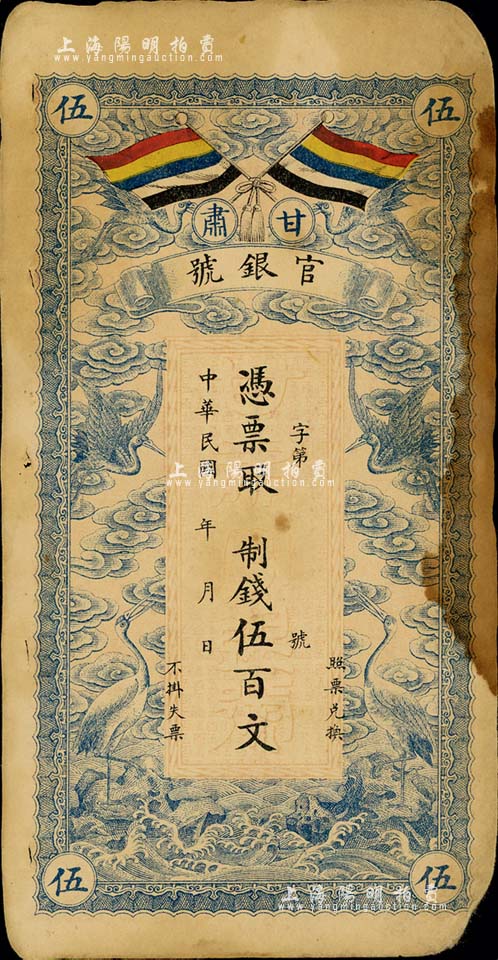 上海陽明拍賣
www.yangmingauction.com
伍
伍
甘肅
官銀號
字第 號
憑票取 制錢伍百文
中華民國 年 月 日
照票兌換
不掛失票
上海陽明拍賣
www.yangmingauction.com
伍
伍
上海陽明拍賣
www.yangmingauction.com